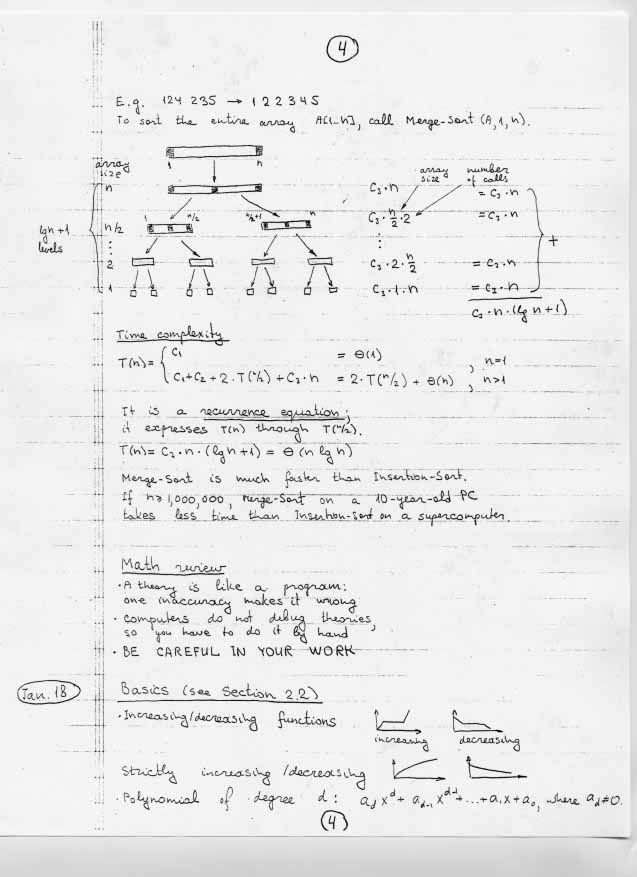 4
E.g. 124 235 → 1 2 2 3 4 5
To sort the entire array A[1-n], call Merge-Sort (A, 1, n).
1 n
array size
array size number of calls
n C₃·n = C₃·n
lg n + 1 levels
n/2 1 n/2 n/2+1 n C₃·n/2·2 = C₃·n
⋮ ⋮ +
2 C₃·2·n/2 = C₃·n
1 C₃·1·n = C₃·n
C₃·n·(lg n+1)
Time complexity
T(n) = { C₁ = Θ(1) , n=1
C₁+C₂+2·T(n/2)+C₃·n = 2·T(n/2) + Θ(n) , n>1
It is a recurrence equation;
it expresses T(n) through T(n/2).
T(n) = C₃·n·(lg n+1) = Θ(n lg n)
Merge-Sort is much faster than Insertion-Sort.
If n ≥ 1,000,000, Merge-Sort on a 10-year-old PC
takes less time than Insertion-Sort on a supercomputer.
Math review
· A theory is like a program:
one inaccuracy makes it wrong
· computers do not debug theories,
so you have to do it by hand
· BE CAREFUL IN YOUR WORK
Jan. 18
Basics (see Section 2.2)
· Increasing/decreasing functions
increasing decreasing
Strictly increasing/decreasing
· Polynomial of degree d: a_d x^d + a_{d-1} x^{d-1} + ... + a₁x + a₀, where a_d ≠ 0.
4